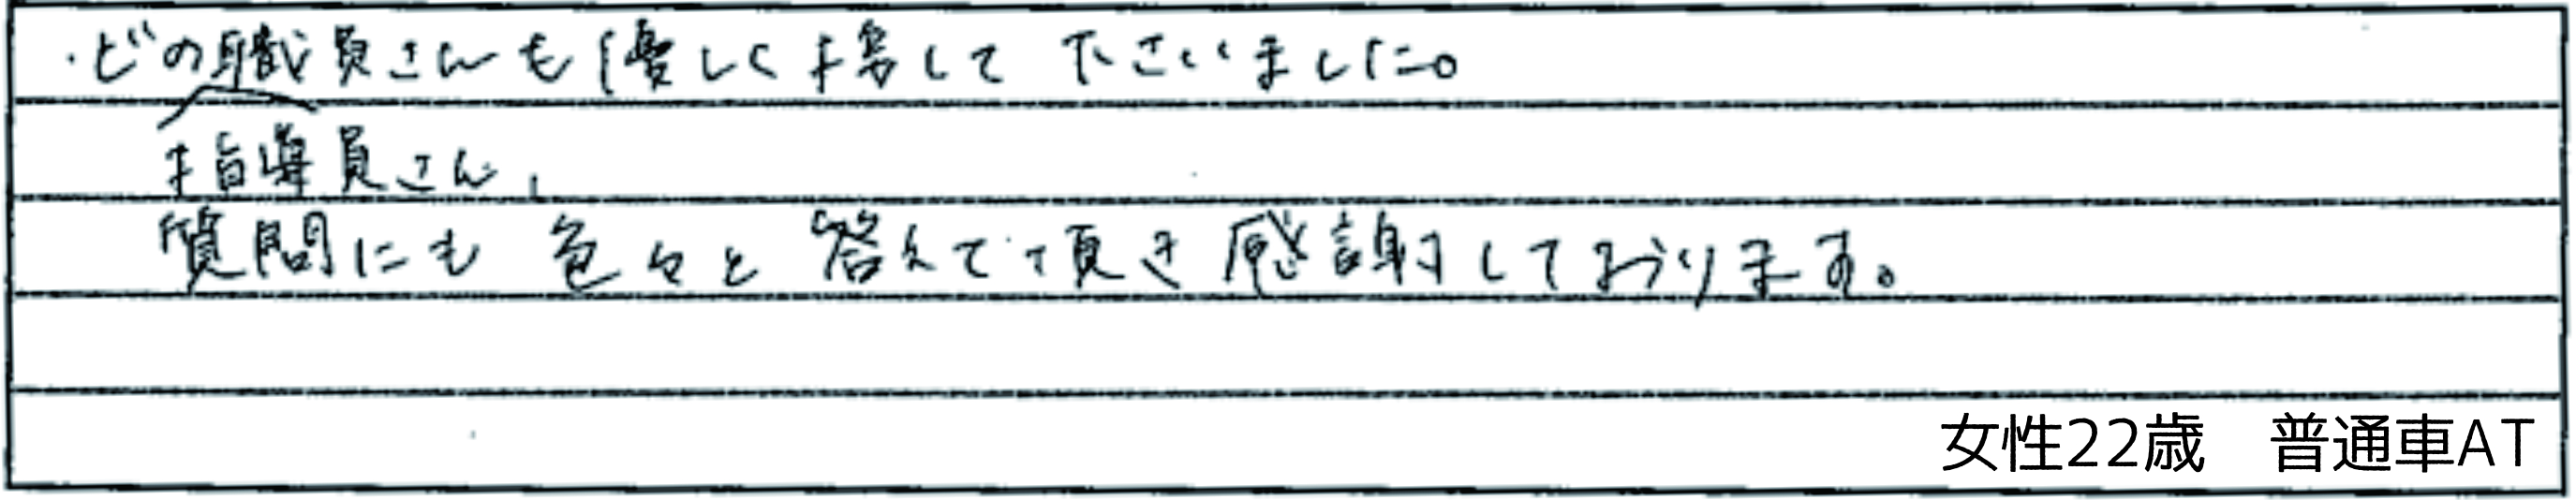 ・どの職員さんも優しく接して下さいました。
指導員さん、
質問にも色々と答えて頂き感謝しております。
女性22歳　普通車AT